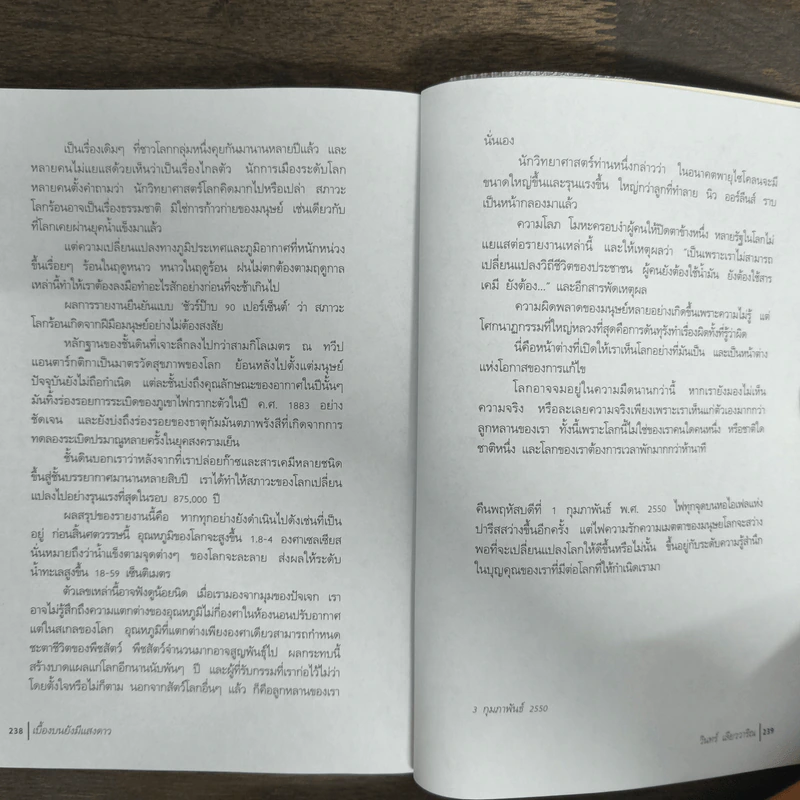 เป็นเรื่องเดิมๆ ที่ชาวโลกกลุ่มหนึ่งคุยกันมานานหลายปีแล้ว และ
หลายคนไม่แยแสด้วยเห็นว่าเป็นเรื่องไกลตัว นักการเมืองระดับโลก
หลายคนตั้งคำถามว่า นักวิทยาศาสตร์โลกคิดมากไปหรือเปล่า สภาวะ
โลกร้อนอาจเป็นเรื่องธรรมชาติ มิใช่การก้าวก่ายของมนุษย์ เช่นเดียวกับ
ที่โลกเคยผ่านยุคน้ำแข็งมาแล้ว
แต่ความเปลี่ยนแปลงทางภูมิประเทศและภูมิอากาศที่หนักหน่วง
ขึ้นเรื่อยๆ ร้อนในฤดูหนาว หนาวในฤดูร้อน ฝนไม่ตกต้องตามฤดูกาล
เหล่านี้ทำให้เราต้องลงมือทำอะไรสักอย่างก่อนที่จะช้าเกินไป
ผลการรายงานยืนยันแบบ ‘ชัวร์ป้าบ 90 เปอร์เซ็นต์’ ว่า สภาวะ
โลกร้อนเกิดจากฝีมือมนุษย์อย่างไม่ต้องสงสัย
หลักฐานของชั้นดินที่เจาะลึกลงไปกว่าสามกิโลเมตร ณ ทวีป
แอนตาร์กติกาเป็นมาตรวัดสุขภาพของโลก ย้อนหลังไปตั้งแต่มนุษย์
ปัจจุบันยังไม่ถือกำเนิด แต่ละชั้นบ่งถึงคุณลักษณะของอากาศในปีนั้นๆ
มันทิ้งร่องรอยการระเบิดของภูเขาไฟกรากะตัวในปี ค.ศ. 1883 อย่าง
ชัดเจน และยังบ่งถึงร่องรอยของธาตุกัมมันตภาพรังสีที่เกิดจากการ
ทดลองระเบิดปรมาณูหลายครั้งในยุคสงครามเย็น
ชั้นดินบอกเราว่าหลังจากที่เราปล่อยก๊าซและสารเคมีหลายชนิด
ขึ้นสู่ชั้นบรรยากาศมานานหลายสิบปี เราได้ทำให้สภาวะของโลกเปลี่ยน
แปลงไปอย่างรุนแรงที่สุดในรอบ 875,000 ปี
ผลสรุปของรายงานนี้คือ หากทุกอย่างยังดำเนินไปดังเช่นที่เป็น
อยู่ ก่อนสิ้นศตวรรษนี้ อุณหภูมิของโลกจะสูงขึ้น 1.8-4 องศาเซลเซียส
นั่นหมายถึงว่าน้ำแข็งตามจุดต่างๆ ของโลกจะละลาย ส่งผลให้ระดับ
น้ำทะเลสูงขึ้น 18-59 เซ็นติเมตร
ตัวเลขเหล่านี้อาจฟังดูน้อยนิด เมื่อเรามองจากมุมของปัจเจก เรา
อาจไม่รู้สึกถึงความแตกต่างของอุณหภูมิไม่กี่องศาในห้องนอนปรับอากาศ
แต่ในสเกลของโลก อุณหภูมิที่แตกต่างเพียงองศาเดียวสามารถกำหนด
ชะตาชีวิตของพืชสัตว์ พืชสัตว์จำนวนมากอาจสูญพันธุ์ไป ผลกระทบนี้
สร้างบาดแผลแก่โลกอีกนานนับพันๆ ปี และผู้ที่รับกรรมที่เราก่อไว้ไม่ว่า
โดยตั้งใจหรือไม่ก็ตาม นอกจากสัตว์โลกอื่นๆ แล้ว ก็คือลูกหลานของเรา
238 เบื้องบนยังมีแสงดาว
นั่นเอง
นักวิทยาศาสตร์ท่านหนึ่งกล่าวว่า ในอนาคตพายุไซโคลนจะมี
ขนาดใหญ่ขึ้นและรุนแรงขึ้น ใหญ่กว่าลูกที่ทำลาย นิว ออร์ลีนส์ ราบ
เป็นหน้ากลองมาแล้ว
ความโลภ โมหะครอบงำผู้คนให้ปิดตาข้างหนึ่ง หลายรัฐในโลกไม่
แยแสต่อรายงานเหล่านี้ และให้เหตุผลว่า “เป็นเพราะเราไม่สามารถ
เปลี่ยนแปลงวิถีชีวิตของประชาชน ผู้คนยังต้องใช้น้ำมัน ยังต้องใช้สาร
เคมี ยังต้อง...” และอีกสารพัดเหตุผล
ความผิดพลาดของมนุษย์หลายอย่างเกิดขึ้นเพราะความไม่รู้ แต่
โศกนาฏกรรมที่ใหญ่หลวงที่สุดคือการดันทุรังทำเรื่องผิดทั้งที่รู้ว่าผิด
นี่คือหน้าต่างที่เปิดให้เราเห็นโลกอย่างที่มันเป็น และเป็นหน้าต่าง
แห่งโอกาสของการแก้ไข
โลกอาจจมอยู่ในความมืดนานกว่านี้ หากเรายังมองไม่เห็น
ความจริง หรือละเลยความจริงเพียงเพราะเราเห็นแก่ตัวเองมากกว่า
ลูกหลานของเรา ทั้งนี้เพราะโลกนี้ไม่ใช่ของเราคนใดคนหนึ่ง หรือชาติใด
ชาติหนึ่ง และโลกของเราต้องการเวลาพักมากกว่าห้านาที
คืนพฤหัสบดีที่ 1 กุมภาพันธ์ พ.ศ. 2550 ไฟทุกจุดบนหอไอเฟลแห่ง
ปารีสสว่างขึ้นอีกครั้ง แต่ไฟความรักความเมตตาของมนุษย์โลกจะสว่าง
พอที่จะเปลี่ยนแปลงโลกให้ดีขึ้นหรือไม่นั้น ขึ้นอยู่กับระดับความรู้สำนึก
ในบุญคุณของเราที่มีต่อโลกที่ให้กำเนิดเรามา
3 กุมภาพันธ์ 2550
วินทร์ เลียววาริณ 239